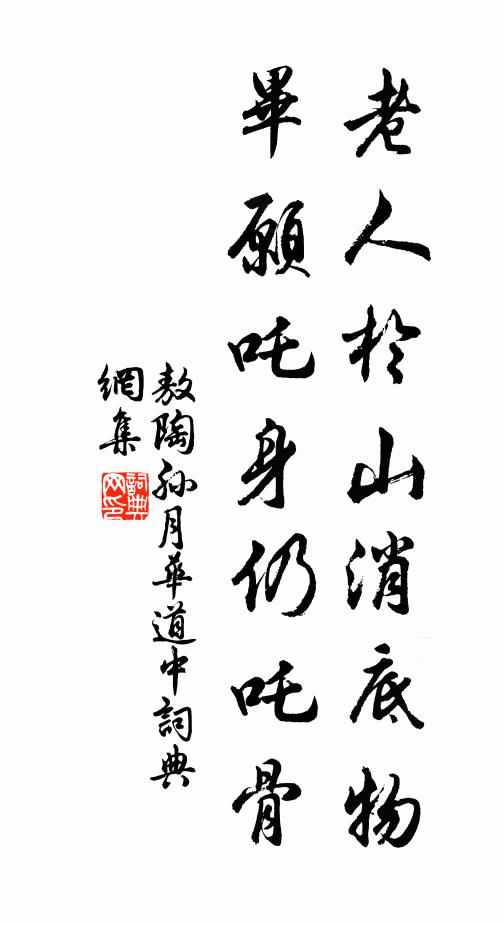 老人於山消底物
畢願吒身仍吒骨
敖陶孫月華道中詞典
網集
詞典
网印